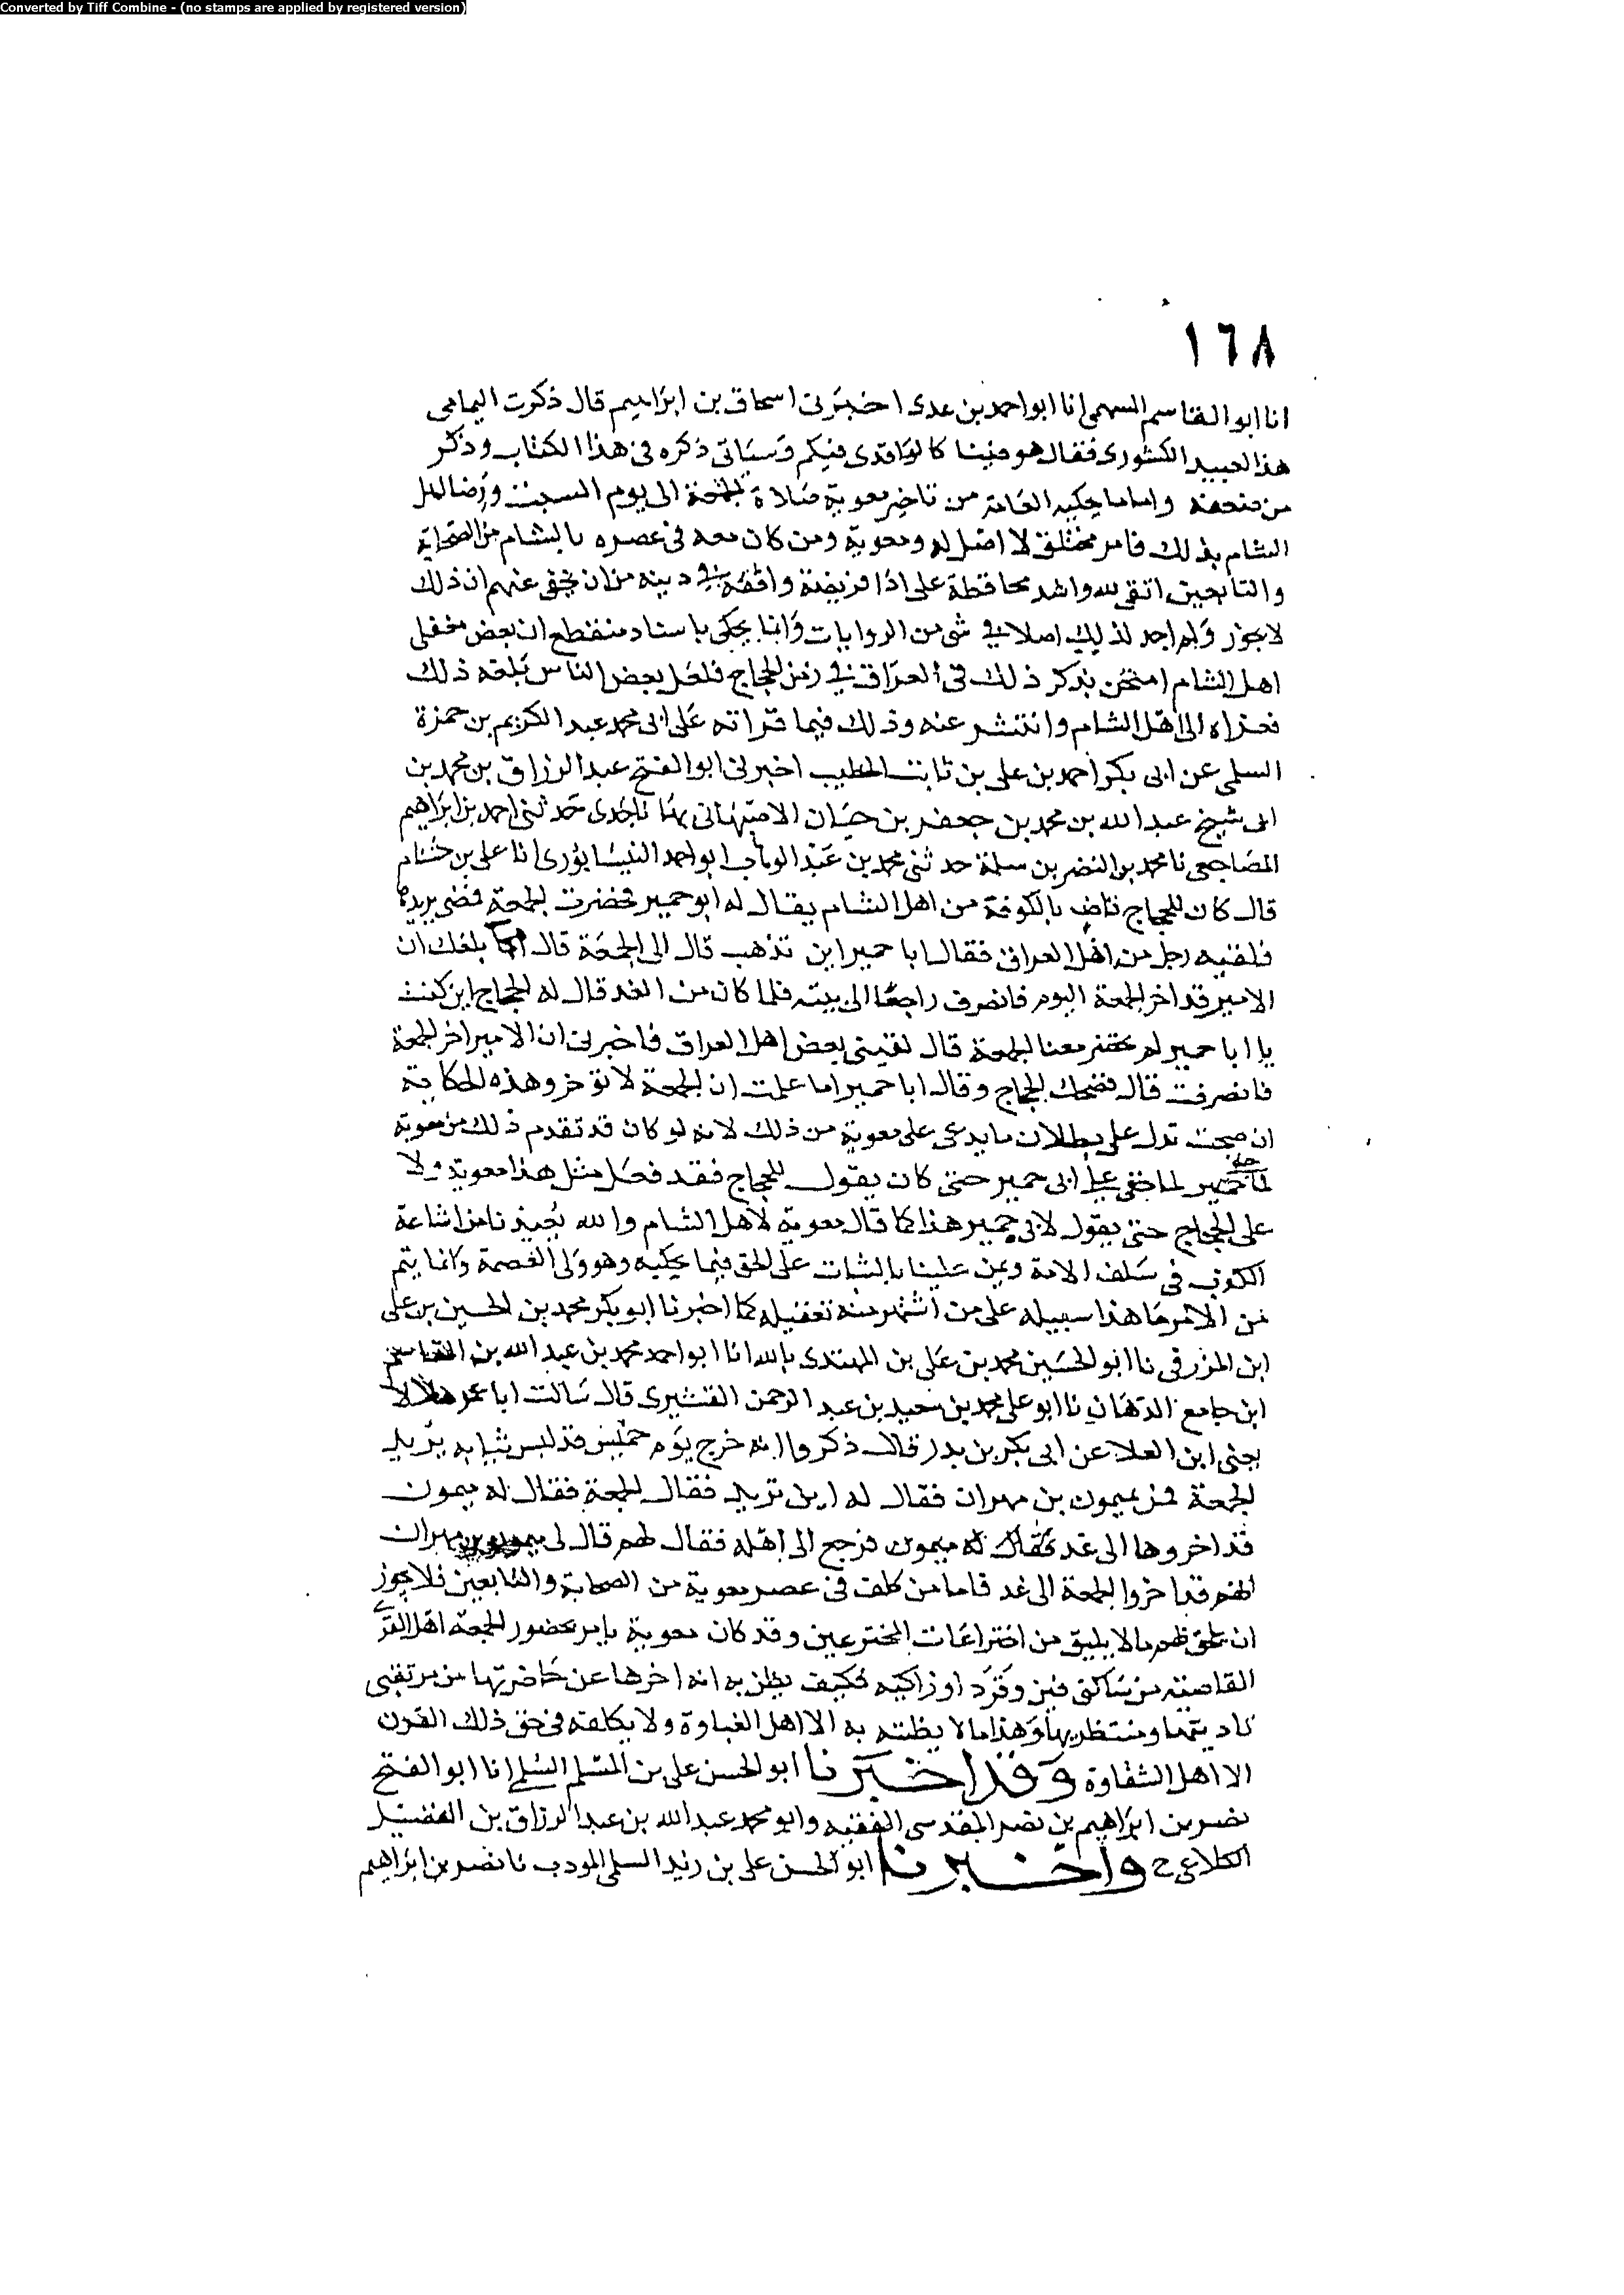 Converted by Tiff Combine - (no stamps are applied by registered version)
١٦٨
انا ابو القاسم السهمي انا ابو احمد بن عدى اخبرنى اسحاق بن ابراهيم قال ذكرت اليمامى
هذا لعبيد الكشورى فقال هو فينا كالواقدى فيكم وسياتى ذكره فى هذا الكتاب وذكر
من ضعفه واما ما يحكيه العامة من تاخير معوية صلاة الجمعة الى يوم السبت ورضا اهل
الشام بذلك فامر مختلق لا اصل له ومعوية ومن كان معه فى عصره بالشام من الصحابة
والتابعين اتقى لله واشد محافظة على اداء فريضة وافقه فى دينه من ان يخفى عنهم ان ذلك
لا يجوز ولم اجد لذلك اصلا فى شى من الروايات وانما يحكى باسناد منقطع ان بعض مغفلى
اهل الشام امتحن بذكر ذلك فى العراق فى زمن الحجاج فلعل بعض الناس بلغه ذلك
فعزاه الى اهل الشام وانتشر عنه وذلك فيما قراته على ابى محمد عبد الكريم بن حمزة
السلمى عن ابى بكر احمد بن على بن ثابت الخطيب اخبرنى ابو الفتح عبد الرزاق بن محمد بن
ابى شيخ عبد الله بن محمد بن جعفر بن حيان الاصبهانى بها نا جدى حدثنى احمد بن ابراهيم
المصاحفى نا محمد بن النضر بن سلمة حدثنى محمد بن عبد الوهاب ابو احمد النيسابورى انا على بن عثام
قال كان للحجاج قاض بالكوفة من اهل الشام يقال له ابو حمير فحضرت الجمعة فمضى يريدها
فلقيه رجل من اهل العراق فقال ابا حمير اين تذهب قال الى الجمعة قال اما بلغك ان
الامير قد اخر الجمعة اليوم فانصرف راجعا الى بيته فلما كان من الغد قال له الحجاج اين كنت
يا ابا حمير لم تحضر معنا الجمعة قال لقينى بعض اهل العراق فاخبرنى ان الامير اخر الجمعة
فانصرفت قال فضحك الحجاج وقال ابا حمير اما علمت ان الجمعة لا تؤخر وهذه الحكاية
ان صحت تدل على بطلان ما يدعى على معوية من ذلك لانه لو كان قد تقدم ذلك من معوية
لما خفى على ابى حمير حتى كان يقول للحجاج فقد فعل مثل هذا معوية ولا
على الحجاج حتى يقول لابى حمير هذا كما قال معوية لاهل الشام والله يعيذنا من اشاعة
الكذب فى سلف الامة ويمن علينا بالثبات على الحق فيما يحكيه وهو ولى العصمة وانما يتم
من الامر ما هذا سبيله على من اشتهر منه تغفيله كما اخبرنا ابو بكر محمد بن الحسين بن على
ابن المزرفى نا ابو الحسين محمد بن على بن المهتدى بالله انا ابو احمد محمد بن عبد الله بن القاسم
ابن جامع الدهان نا ابو على محمد بن سعيد بن عبد الرحمن القشيرى قال سالت ابا عمر هلالا
يعنى ابن العلا عن ابى بكر بن بدر قال ذكروا انه خرج يوم خميس قد لبس ثيابه يريد
الجمعة فمر بميمون بن مهران فقال له اين تريد فقال الجمعة فقال له ميمون
قد اخروها الى غد فرجع الى اهله فقال لهم قال لى ميمون بن مهران
انهم قد اخروا الجمعة الى غد فاما من كان فى عصر معوية من الصحابة والتابعين فلا يجوز
ان يلحق بهم ما لا يليق من اختراعات المخترعين وقد كان معوية يامر بحضور الجمعة اهل القرى
القاصية من ساكنى فين وقرد او زاكية فكيف يظن به انه اخرها عن حاضرتها من مرتقبى
تاديتها ومنتظريها وهذا ما لا يظنه به الا اهل الغباوة ولا يكلفه فى حق ذلك القرن
الا اهل الشقاوة وقد اخبرنا ابو الحسن على بن المسلم السلمى انا ابو الفتح
نصر بن ابراهيم بن نصر المقدسى الفقيه وابو محمد عبد الله بن عبد الرزاق بن الفضيل
الكلاعى ح واخبرنا ابو الحسن على بن زيد السلمى المودب نا نصر بن ابراهيم